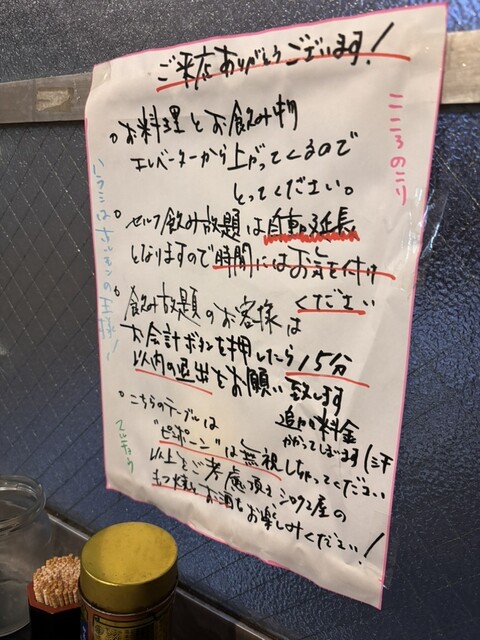 ご来店ありがとうございます!
お料理とお飲み物
エレベーターから上がってくるので
とってください。
セルフ飲み放題は自動延長
となりますので時間にはお気を付け
ください
飲み放題のお客様は
お会計ボタンを押したら15分
以内の退出をお願い致します
追加料金
かかってしまいます
こちらのテーブルは
"ピンポーン"は無視しちゃってください
以上をご考慮頂き
もつ焼とお酒をお楽しみください!
こころのこり
ハラミはホルモンの王様!
てっちゃう